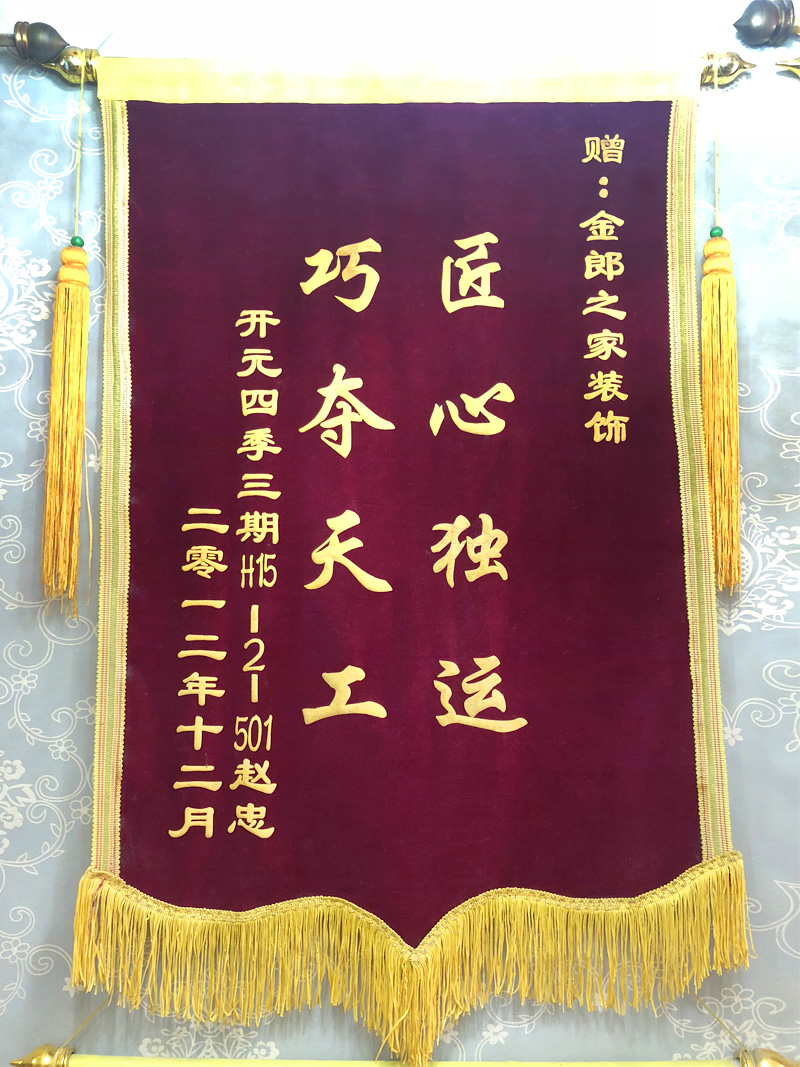 赠：金郎之家装饰
匠心独运
巧夺天工
开元四季三期H15-2-501赵忠
二零一二年十二月